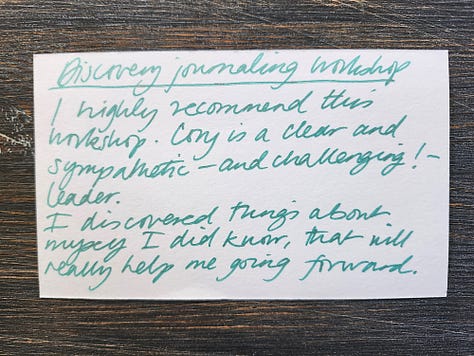 Discovery journaling workshop
I highly recommend this
workshop. Cory is a clear and
sympathetic – and challenging! –
leader.
I discovered things about
myself I did know, that will
really help me going forward.